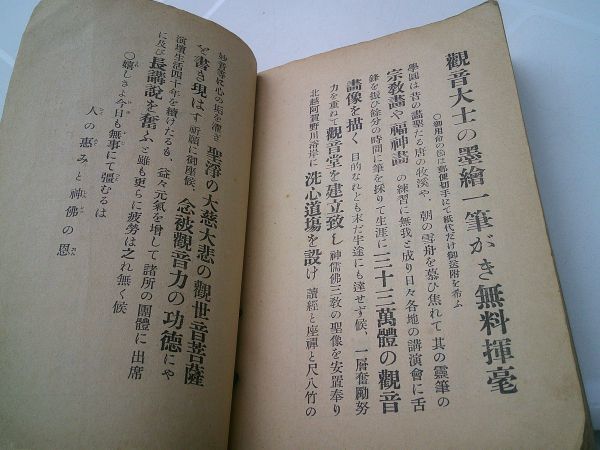 觀音大士の墨繪一筆がき無料揮毫
○御用命の際は郵便切手にて紙代だけ御送附を希ふ
學園は昔の畵聖たる唐の牧溪や、朝の雪舟を慕ひ焦れて其の靈筆の
宗敎畵や福神畵の練習に無我と成り日々各地の講演會に舌
鋒を振ひ餘分の時間に筆を採りて生涯に三十三萬體の觀音
畵像を描く目的なれども未だ半途にも達せず候、一層奮勵努
力を重ねて觀音堂を建立致し神儒佛三敎の聖像を安置奉り
北越阿賀野川沿岸に洗心道塲を設け讀經と座禪と尺八竹の
妙音等に心の垢を濯ぎ聖淨の大慈大悲の觀世音菩薩
を書き現はす祈願に御座候、念被觀音力の功德にや
演壇生活四十年を續けたるも、益々元氣を增して諸所の團體に出席
に及び長講說を奮ふと雖も更らに疲勞は之れ無く候
○嬉しさよ今日も無事にて彊むるは
人の惠みと神佛の恩